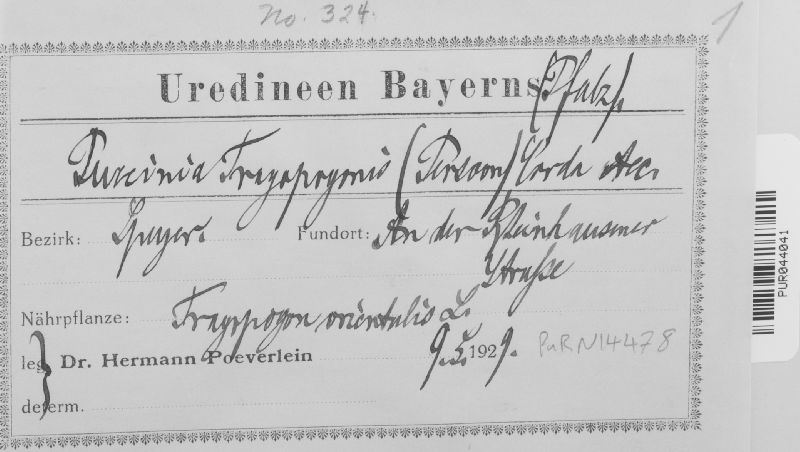 No. 324.
1
Uredineen Bayerns (Pfalz).
Puccinia Tragopogonis (Persoon) Corda Aec.
Bezirk: Speyer. Fundort: An der Rheinhausener
Straße
Nährpflanze: Tragopogon orientalis L.
leg. Dr. Hermann Poeverlein 9.5.1929. PuRN14478
determ.
PUR044041